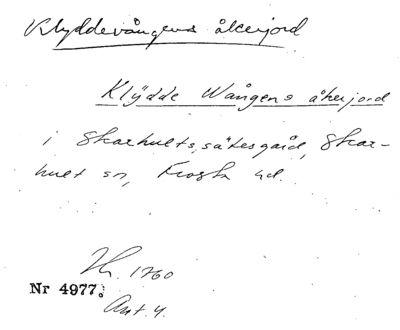 Klyddevångens åkerjord
Klÿdde Wångens åkerjord
i Skarhults sätesgård, Skar-
hult sn, Frosta hd.
Th. 1760
Nr 4977.
Ant. 4.